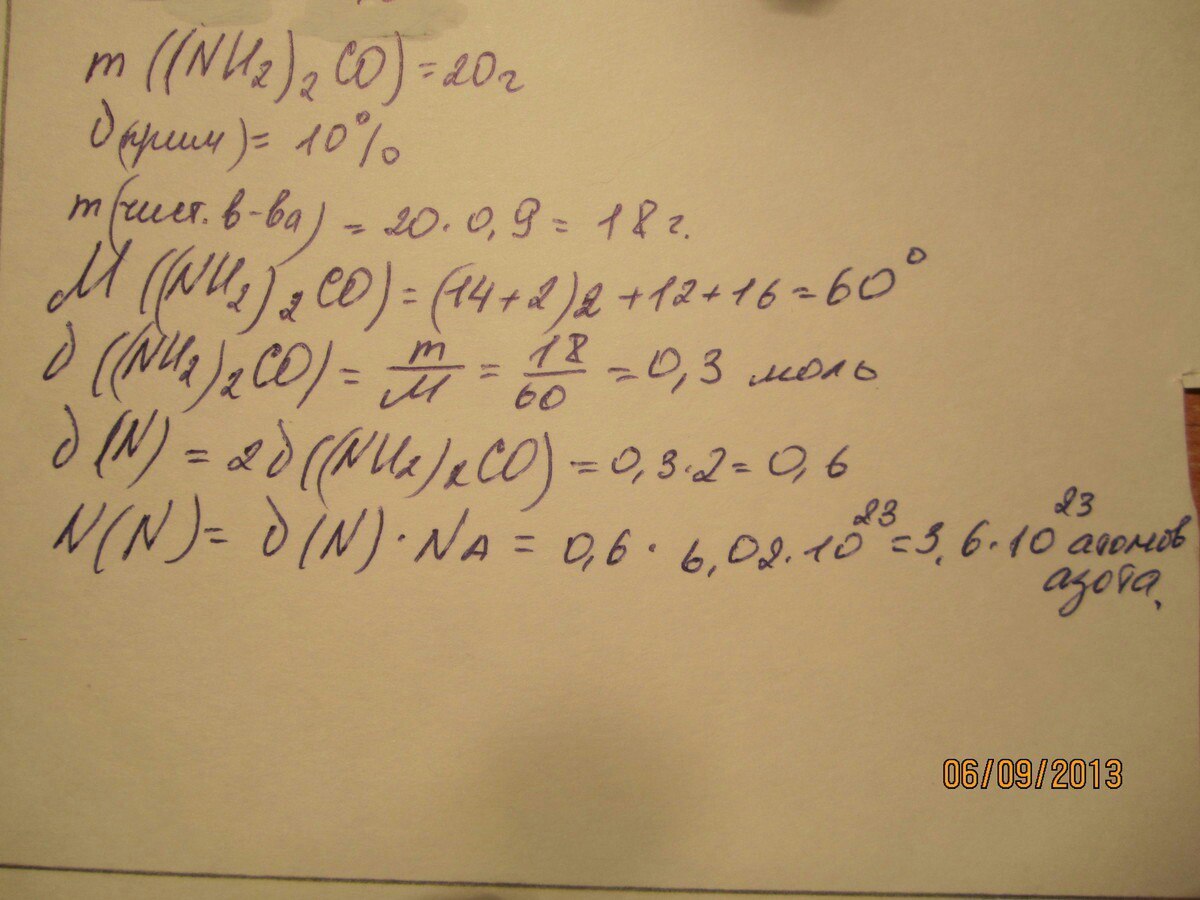 m ((NH₂)₂CO) = 20г
∂(прим) = 10%
m(чист. в-ва) = 20·0,9 = 18г.
M ((NH₂)₂CO) = (14+2)2+12+16=60°
∂ ((NH₂)₂CO) = m/M = 18/60 = 0,3 моль
∂(N) = 2∂((NH₂)₂CO) = 0,3·2=0,6
N(N) = ∂(N)·NA = 0,6· 6,02·10²³=3,6·10²³ атомов
азота.
06/09/2013